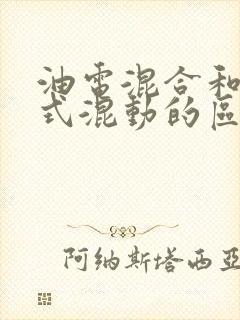 油電混合和
式混動的區
阿纳斯塔西亚